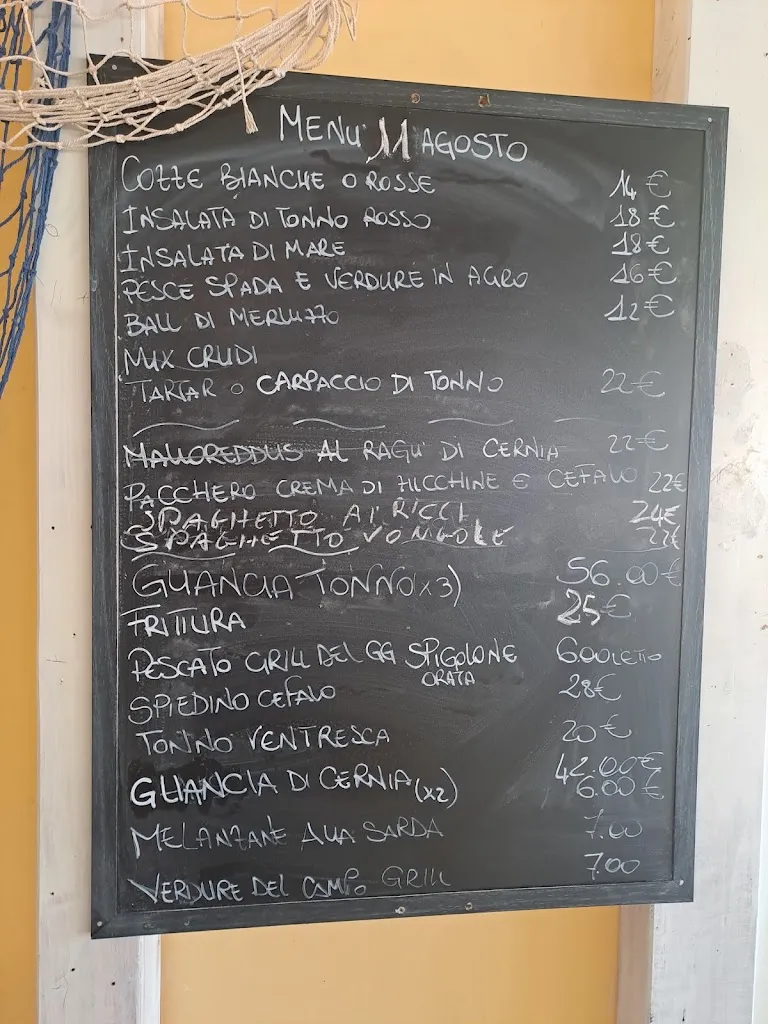 MENU 11 AGOSTO
COZZE BIANCHE O ROSSE 14 €
INSALATA DI TONNO ROSSO 18 €
INSALATA DI MARE 18€
PESCE SPADA E VERDURE IN AGRO 16€
BALL DI MERLUZZO 12€
MIX CRUDI
TARTAR O CARPACCIO DI TONNO 22€
MALLOREDDUS AL RAGU' DI CERNIA 22€
PACCHERO CREMA DI ZUCCHINE E CEFALO 22€
SPAGHETTO AI RICCI 24€
SPAGHETTO VONGOLE 22€
GUANCIA TONNO (x3) 56.00€
FRITTURA 25€
PESCATO GRILL DEL GG SPIGOLONE 6.00LETTO
ORATA
SPIEDINO CEFALO 28€
TONNO VENTRESCA 20€
GUANCIA DI CERNIA (x2) 42.00€
6.00€
MELANZANE ALLA SARDA 7.00
VERDURE DEL CAMPO GRILL 7.00